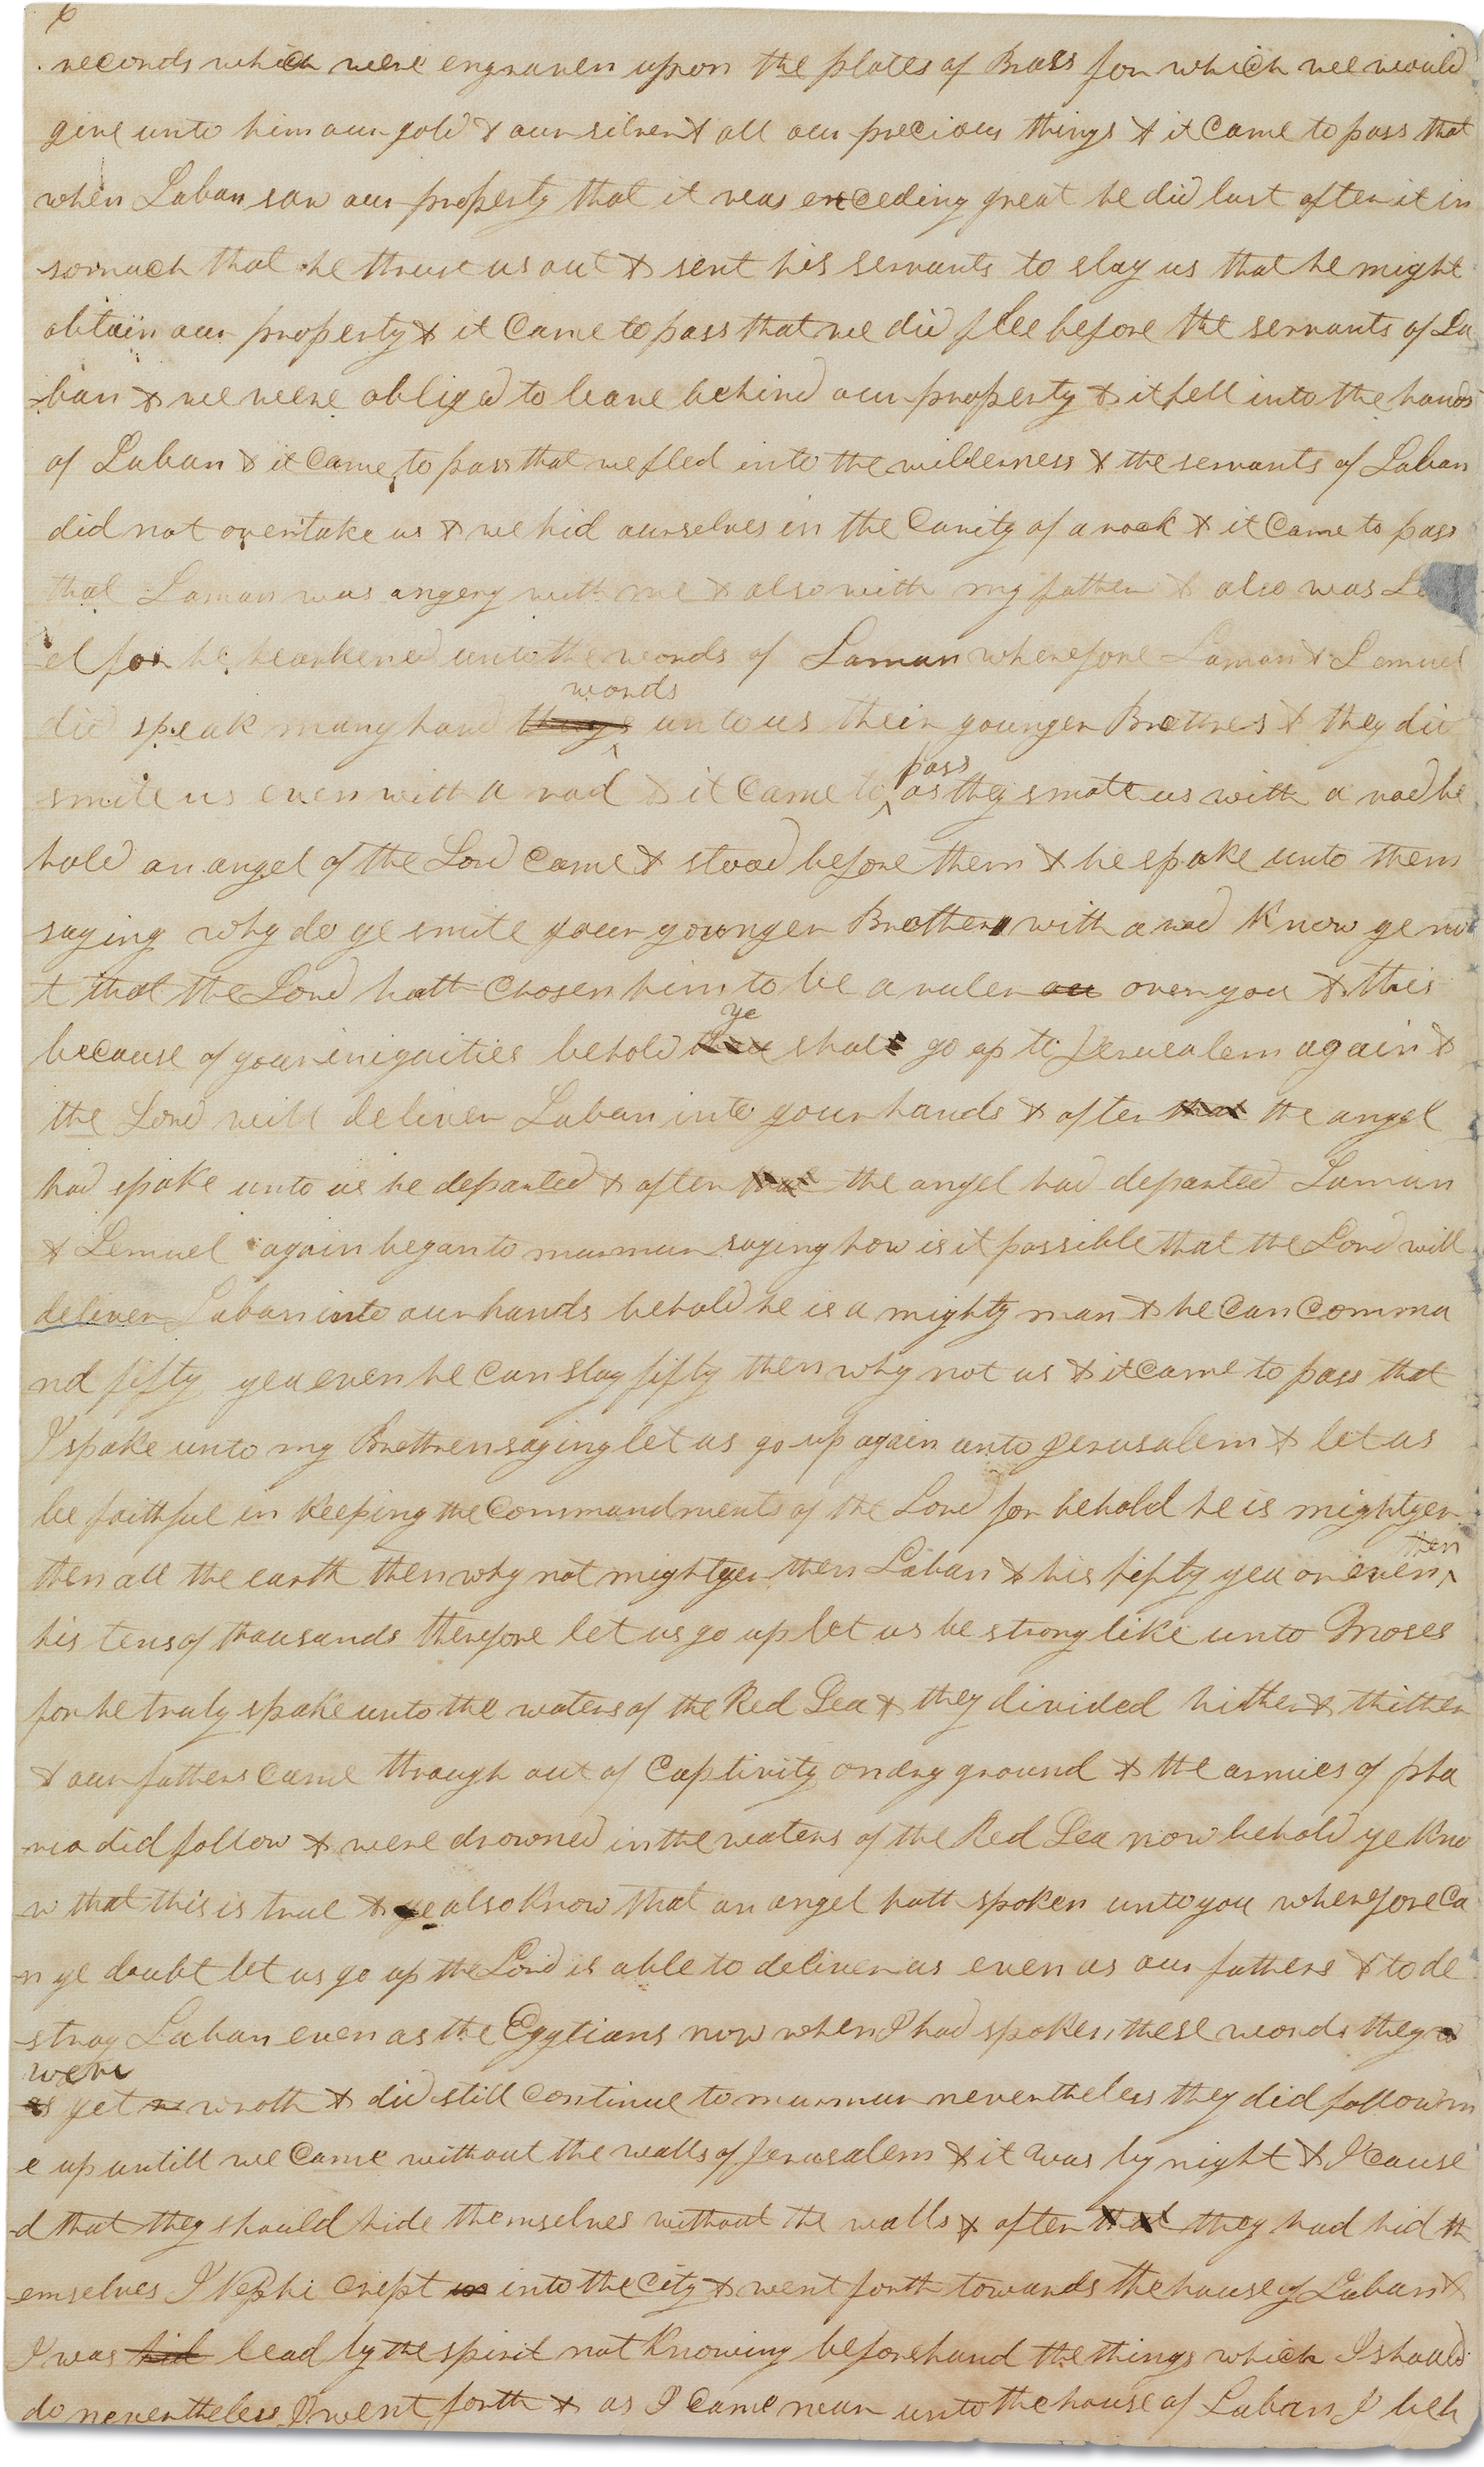 6
records which were engraven upon the plates of Brass for which we would
give unto him our gold & our silver & all our precious things & it came to pass that
when Laban saw our property that it was exceding great he did lust after it in
somuch that he thrust us out & sent his servants to slay us that he might
obtain our property & it came to pass that we did flee before the servants of La
ban & we were obliged to leave behind our property & it fell into the hands
of Laban & it came to pass that we fled into the wilderness & the servants of Laban
did not overtake us & we hid ourselves in the cavity of a rock & it came to pass
that Laman was angery with me & also with my father & also was Le
el for he hearkened unto the words of Laman wherefore Laman & Lemuel
words
did speak many hard things unto us their younger Brethres & they did
pass
smite us even with a rod & it came to as they smote us with a rod be
hold an angel of the Lord came & stood before them & he spake unto them
saying why do ye smite your younger Brother with a rod know ye no
t that the Lord hath chosen him to be a ruler ou over you & this
ye
because of your iniquities behold thou shalt go up to Jerusalem again &
the Lord will deliver Laban into your hands & after that the angel
had spake unto us he departed & after that the angel had departed Laman
& Lemuel again began to murmur saying how is it possible that the Lord will
deliver Laban into our hands behold he is a mighty man & he can comma
nd fifty yea even he can slay fifty then why not us & it came to pass that
I spake unto my Brethren saying let us go up again unto Jerusalem & let us
be faithful in keeping the commandments of the Lord for behold he is mightyer
then
then all the earth then why not mightyer then Laban & his fifty yea or even
his tens of thousands therefore let us go up let us be strong like unto Moses
for he truly spake unto the waters of the Red Sea & they divided hither & thither
& our fathers came through out of captivity on dry ground & the armies of pha
roa did follow & were drowned in the waters of the Red Sea now behold ye kno
w that this is true & ye also know that an angel hath spoken unto you wherefore ca
n ye doubt let us go up the Lord is able to deliver us even as our fathers & to de
stroy Laban even as the Egytians now when I had spoken these words they w
were
as yet wroth & did still continue to murmur nevertheless they did follow m
e up untill we came without the walls of Jerusalem & it was by night & I cause
d that they should hide themselves without the walls & after that they had hid th
emselves I Nephi crept in into the city & went forth towards the house of Laban &
I was hid lead by the spirit not knowing beforehand the things which I should
do nevertheless I went forth & as I came near unto the house of Laban I beh